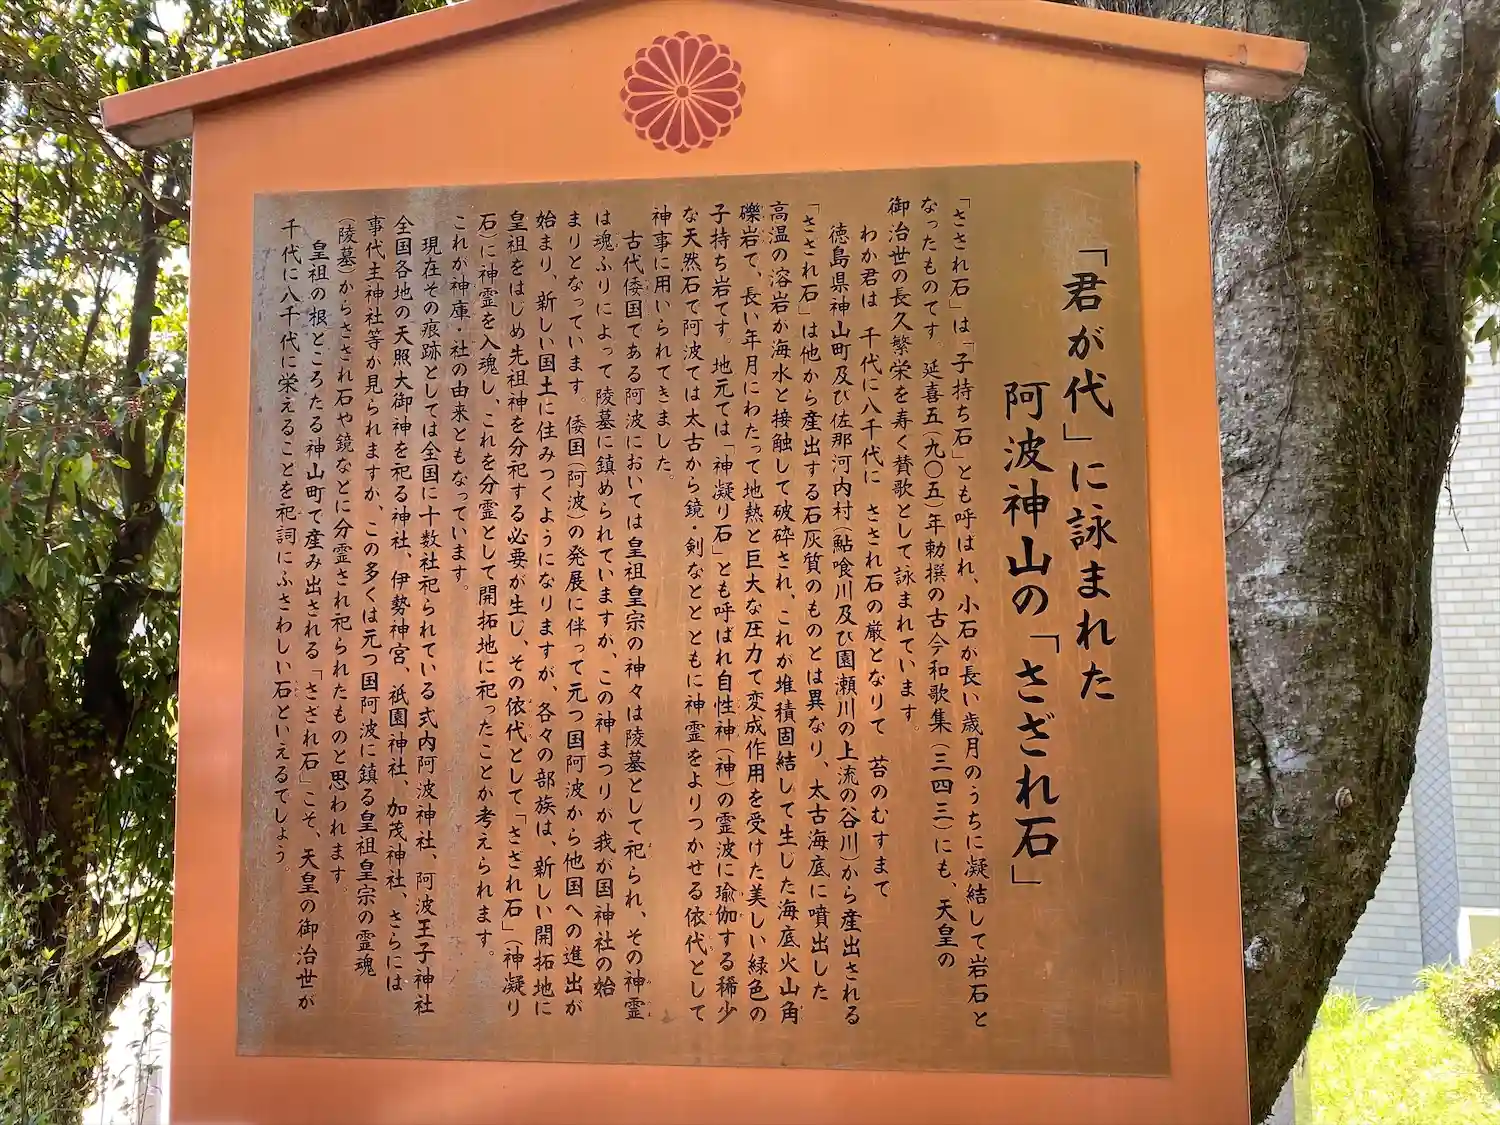 「君が代」に詠まれた
阿波神山の「さざれ石」
「さざれ石」は「子持ち石」とも呼ばれ、小石が長い歳月のうちに凝結して岩石と
なったものです。延喜五(九〇五)年勅撰の古今和歌集(三四三)にも、天皇の
御治世の長久繁栄を寿く賛歌として詠まれています。
わか君は 千代に八千代に さざれ石の厳となりて 苔のむすまて
徳島県神山町及び佐那河内村(鮎喰川及び園瀬川の上流の谷川)から産出される
「さざれ石」は他から産出する石灰質のものとは異なり、太古海底に噴出した
高温の溶岩か海水と接触して破砕され、これが堆積固結して生じた海底火山角
礫岩て、長い年月にわたって地熱と巨大な圧力て変成作用を受けた美しい緑色の
子持ち岩てす。地元ては「神凝り石」とも呼ばれ自性神(神)の霊波に瑜伽する稀少
な天然石て阿波ては太古から鏡・剣なととともに神霊をよりつかせる依代として
神事に用いられてきました。
古代倭国てある阿波においては皇祖皇宗の神々は陵墓として祀られ、その神霊
は魂ふりによって陵墓に鎮められていますか、この神まつりが我が国神社の始
まりとなっています。倭国(阿波)の発展に伴って元つ国阿波から他国への進出が
始まり、新しい国土に住みつくようになりますが、各々の部族は、新しい開拓地に
皇祖をはじめ先祖神を分祀する必要が生じ、その依代として「さざれ石」(神凝り
石)に神霊を入魂し、これを分霊として開拓地に祀ったことか考えられます。
これが神庫・社の由来ともなっています。
現在その痕跡としては全国に十数社祀られている式内阿波神社、阿波王子神社
全国各地の天照大御神を祀る神社、伊勢神宮、祇園神社、加茂神社、さらには
事代主神社等か見られますか、この多くは元つ国阿波に鎮る皇祖皇宗の霊魂
(陵墓)からさざれ石や鏡なとに分霊され祀られたものと思われます。
皇祖の根ところたる神山町て産み出される「さざれ石」こそ、天皇の御治世が
千代に八千代に栄えることを祀詞にふさわしい石といえるてしょう。